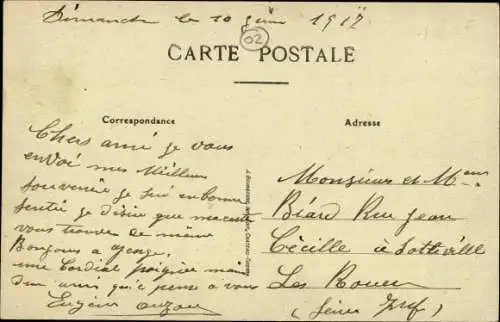 Dimanche le 10 juin 1917
02
CARTE POSTALE
Correspondance
Adresse
Chers ami je vous
envoi mes Meilleurs
souvenir je sui en bonne
santé je désire que ma carte
vous trouve de même
Bonjours a
une Cordial poignée main
d'un ami qui pense a vous
Eugène
Monsieur et Mme
Béard Rue Jean
Cécille à Sotteville
Les Rouen
(Seine Inf)